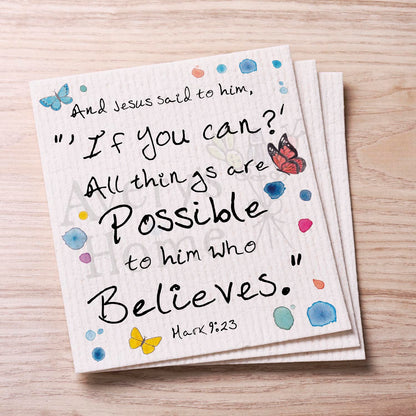 And Jesus said to him,
"'If you can?'
All things are
Possible
to him who
Believes."
Mark 9:23